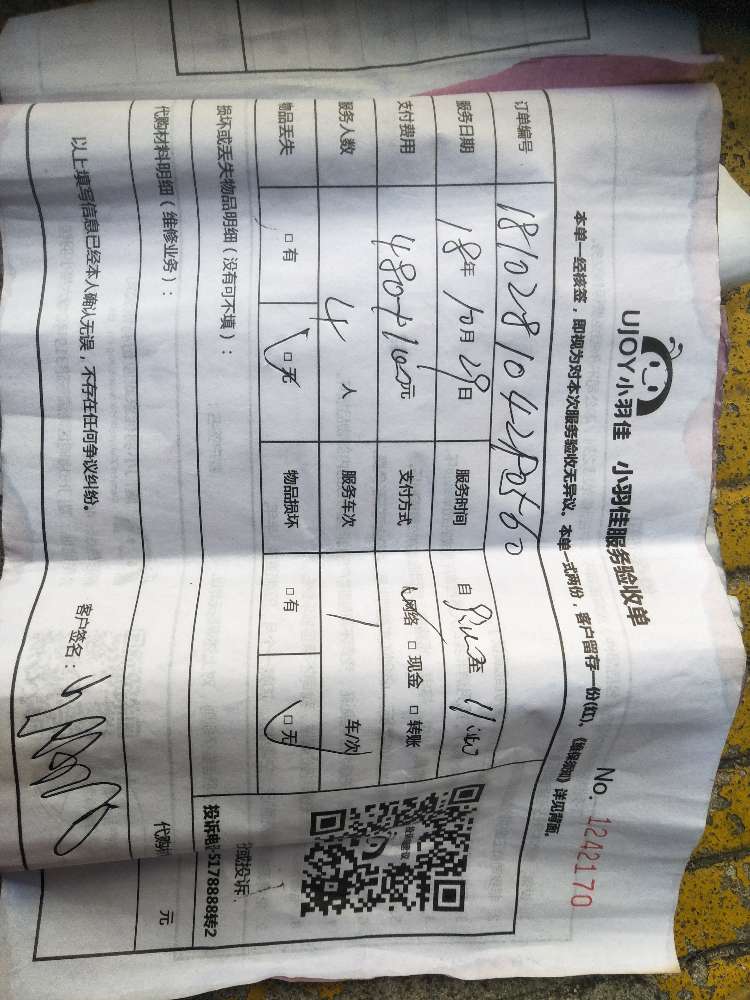 UJOY小羽佳 小羽佳服务验收单
No. 1242170
本单一经核签，即视为对本次服务验收无异议。本单一式两份，客户留存一份(红)，《维保须知》详见背面。
订单编号
服务日期 18年10月29日 服务时间 自 至
支付费用 480+100元 支付方式 网络 □ 现金 □ 转账
服务人数 4 人 服务车次 1 车/次
物品丢失 □ 有 □ 无 物品损坏 □ 有 □ 无
损坏或丢失物品明细（没有可不填）：
或投诉
投诉电 5178888转2
代购材料明细（维修业务）： 代购 元
以上填写信息已经本人确认无误，不存在任何争议纠纷。 客户签名：